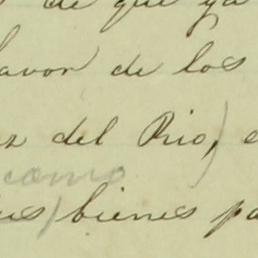 de que ya
favor de los
del Rio,)
como
) bienes pa